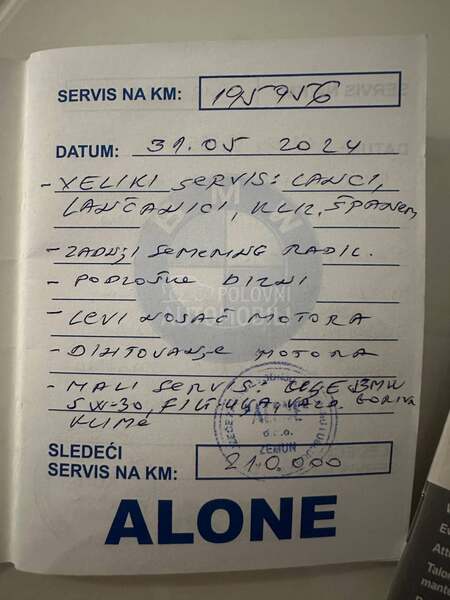 SERVIS NA KM: 195956
DATUM: 31.05 2024
- VELIKI SERVIS: LANCI,
LANČANICI, KLIZ. ŠPANER,
- ZADNJI SEMERING RADIL.
- PODLOŠKE DIZNI
POLOVNI
- LEVI NOSAČ MOTORA
- DIHTOVANJE MOTORA
- MALI SERVIS: ULJE BMW
5W-30, FIL. ULJA, VAZD. GORIVA
KLIME
ZEMUN
SLEDEĆI
SERVIS NA KM: 210.000
ALONE
Ev
Att